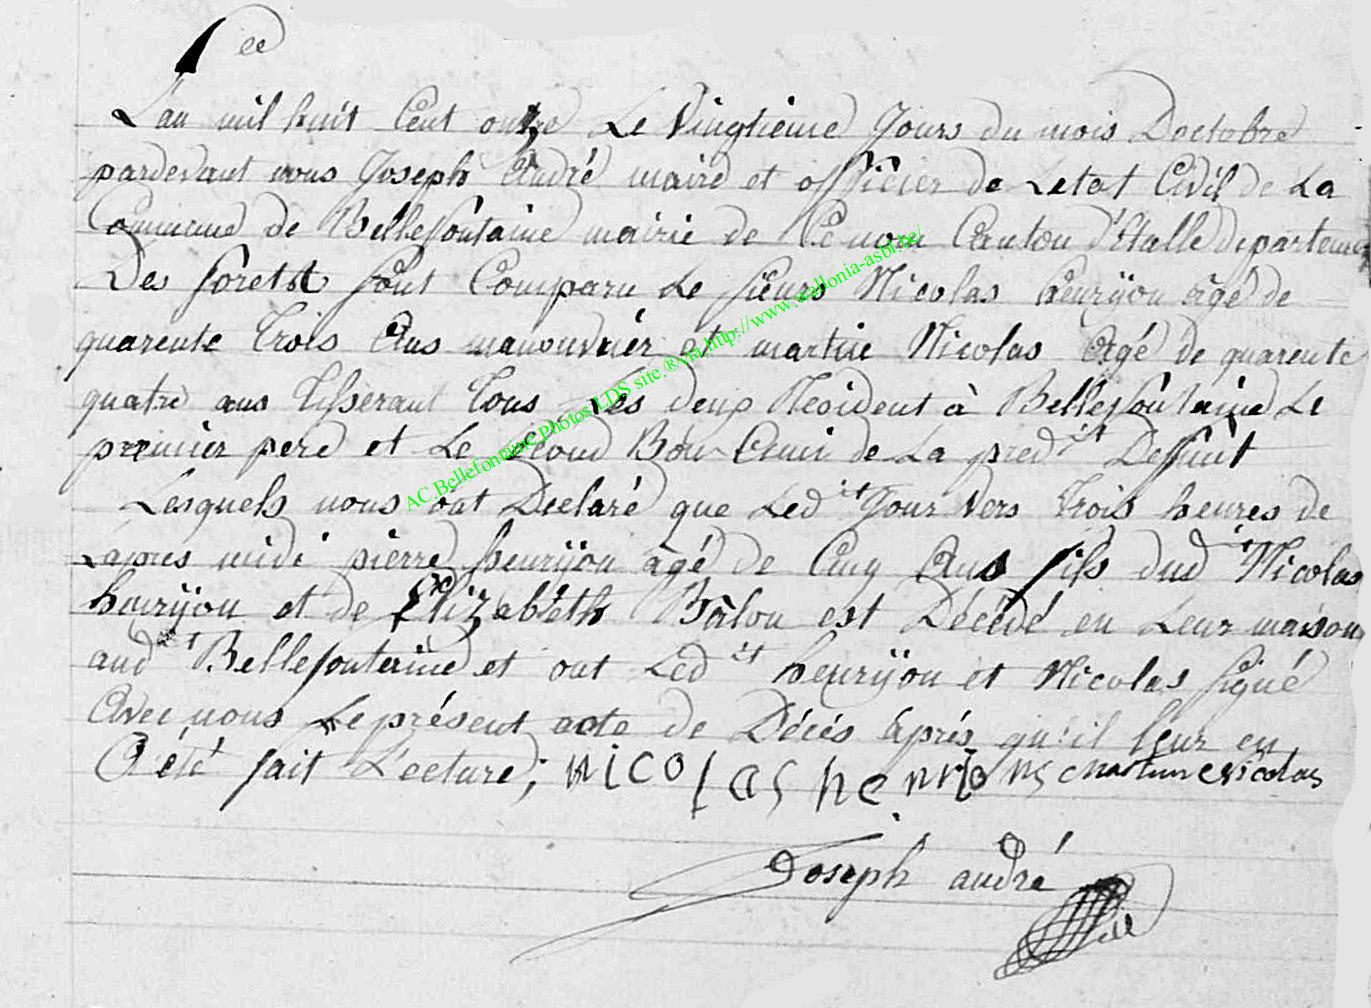 L'an mil huit Cent onze Le Vingtieme Jours du mois Doctobre
pardevant nous Joseph André maire et officier de Letat Civil de La
Commune de Bellefontaine mairie de Ce nom Canton d'Etalle departement
Des forest sont Comparu Le sieurs Nicolas henrijon agé de
quarente trois Ans manouvrier et martin Nicolas Agé de quarente
quatre ans tisserant tous Les deux Resident à Bellefontaine Le
premier pere et Le second Bon Amis de La pred it Deffunt
Lesquels nous ont Declaré que Led it Jour Vers trois heures de
Lapres midi pierre henrijon agé de Cinq Ans fils dud it Nicolas
henrijon et de Elizabeth Balon est Décédé en Leur maison
aud it Bellefontaine et ont Led it henrijon et Nicolas signé
Avec nous Le présent acte de Décés Aprés qu'il leur en
A été fait L'ecture; NICOLAS henrIoNS martin Nicolas
Joseph andré
AC Bellefontaine Photos LDS site ® via http://www.wallonia-asbl.be/